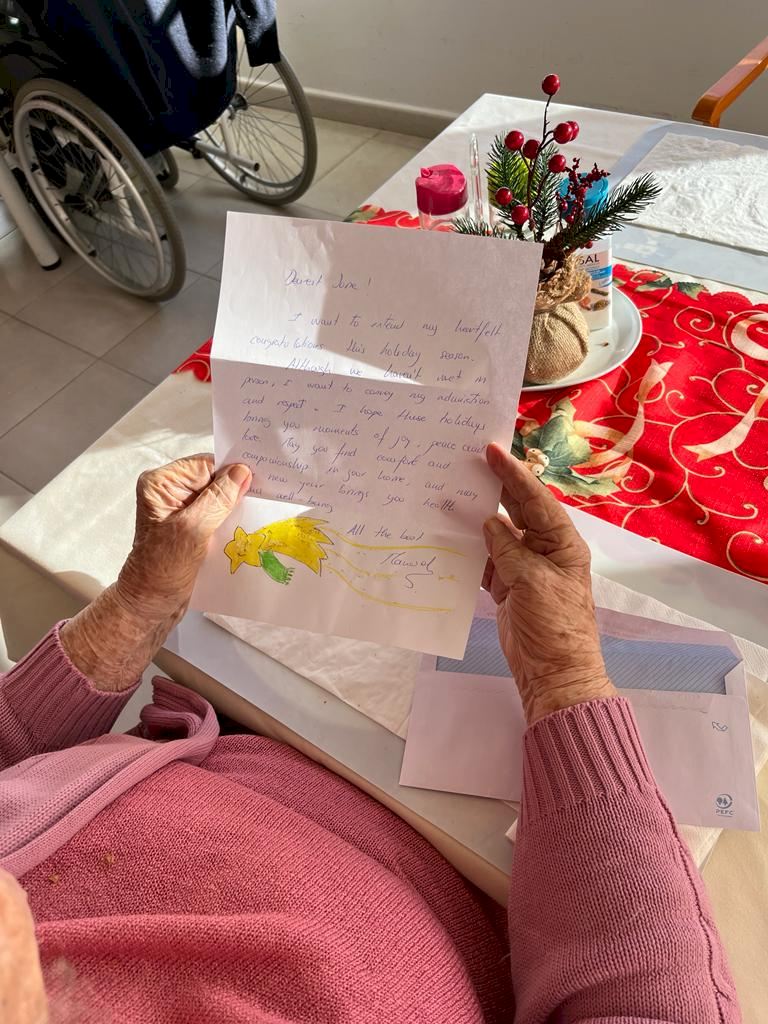 Dearest Jone!
I want to extend my heartfelt
congratulations this holiday season.
Although we haven't met in
person, I want to convey my admiration
and respect. I hope these holidays
bring you moments of joy, peace and
love. May you find comfort and
companionship in your home, and may
new year brings you health
well-being
All the best
Manuel
SAL
PEFC